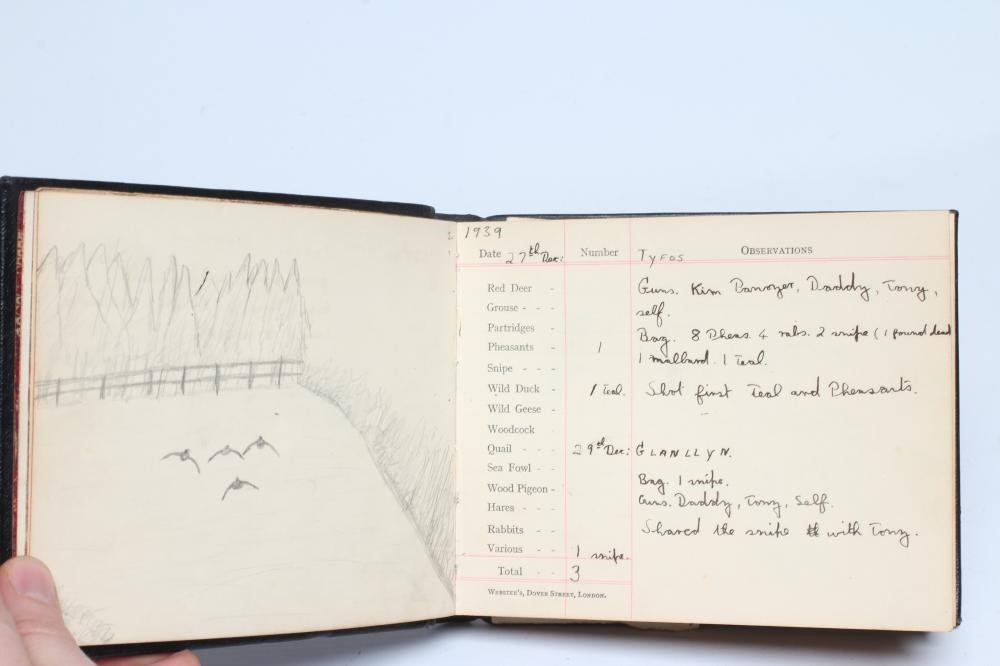 1939
Date 27th Dec: Number TYFOS OBSERVATIONS
Red Deer - Guns. Kim                 , Daddy, Tony,
Grouse - - - self.
Partridges - Bag. 8 Pheas. 4 rabs. 2 snipe (1 found dead
Pheasants - 1 1 mallard. 1 Teal.
Snipe - - -
Wild Duck - 1 Teal. Shot first Teal and Pheasants.
Wild Geese -
Woodcock
Quail - - 29th Dec: GLANLLYN.
Sea Fowl - -
Wood Pigeon - Bag. 1 snipe.
Hares - - Guns. Daddy, Tony, Self.
Rabbits - - Shared the snipe with Tony.
Various - - 1 snipe.
Total - - 3
WEBSTER'S, DOVER STREET, LONDON.